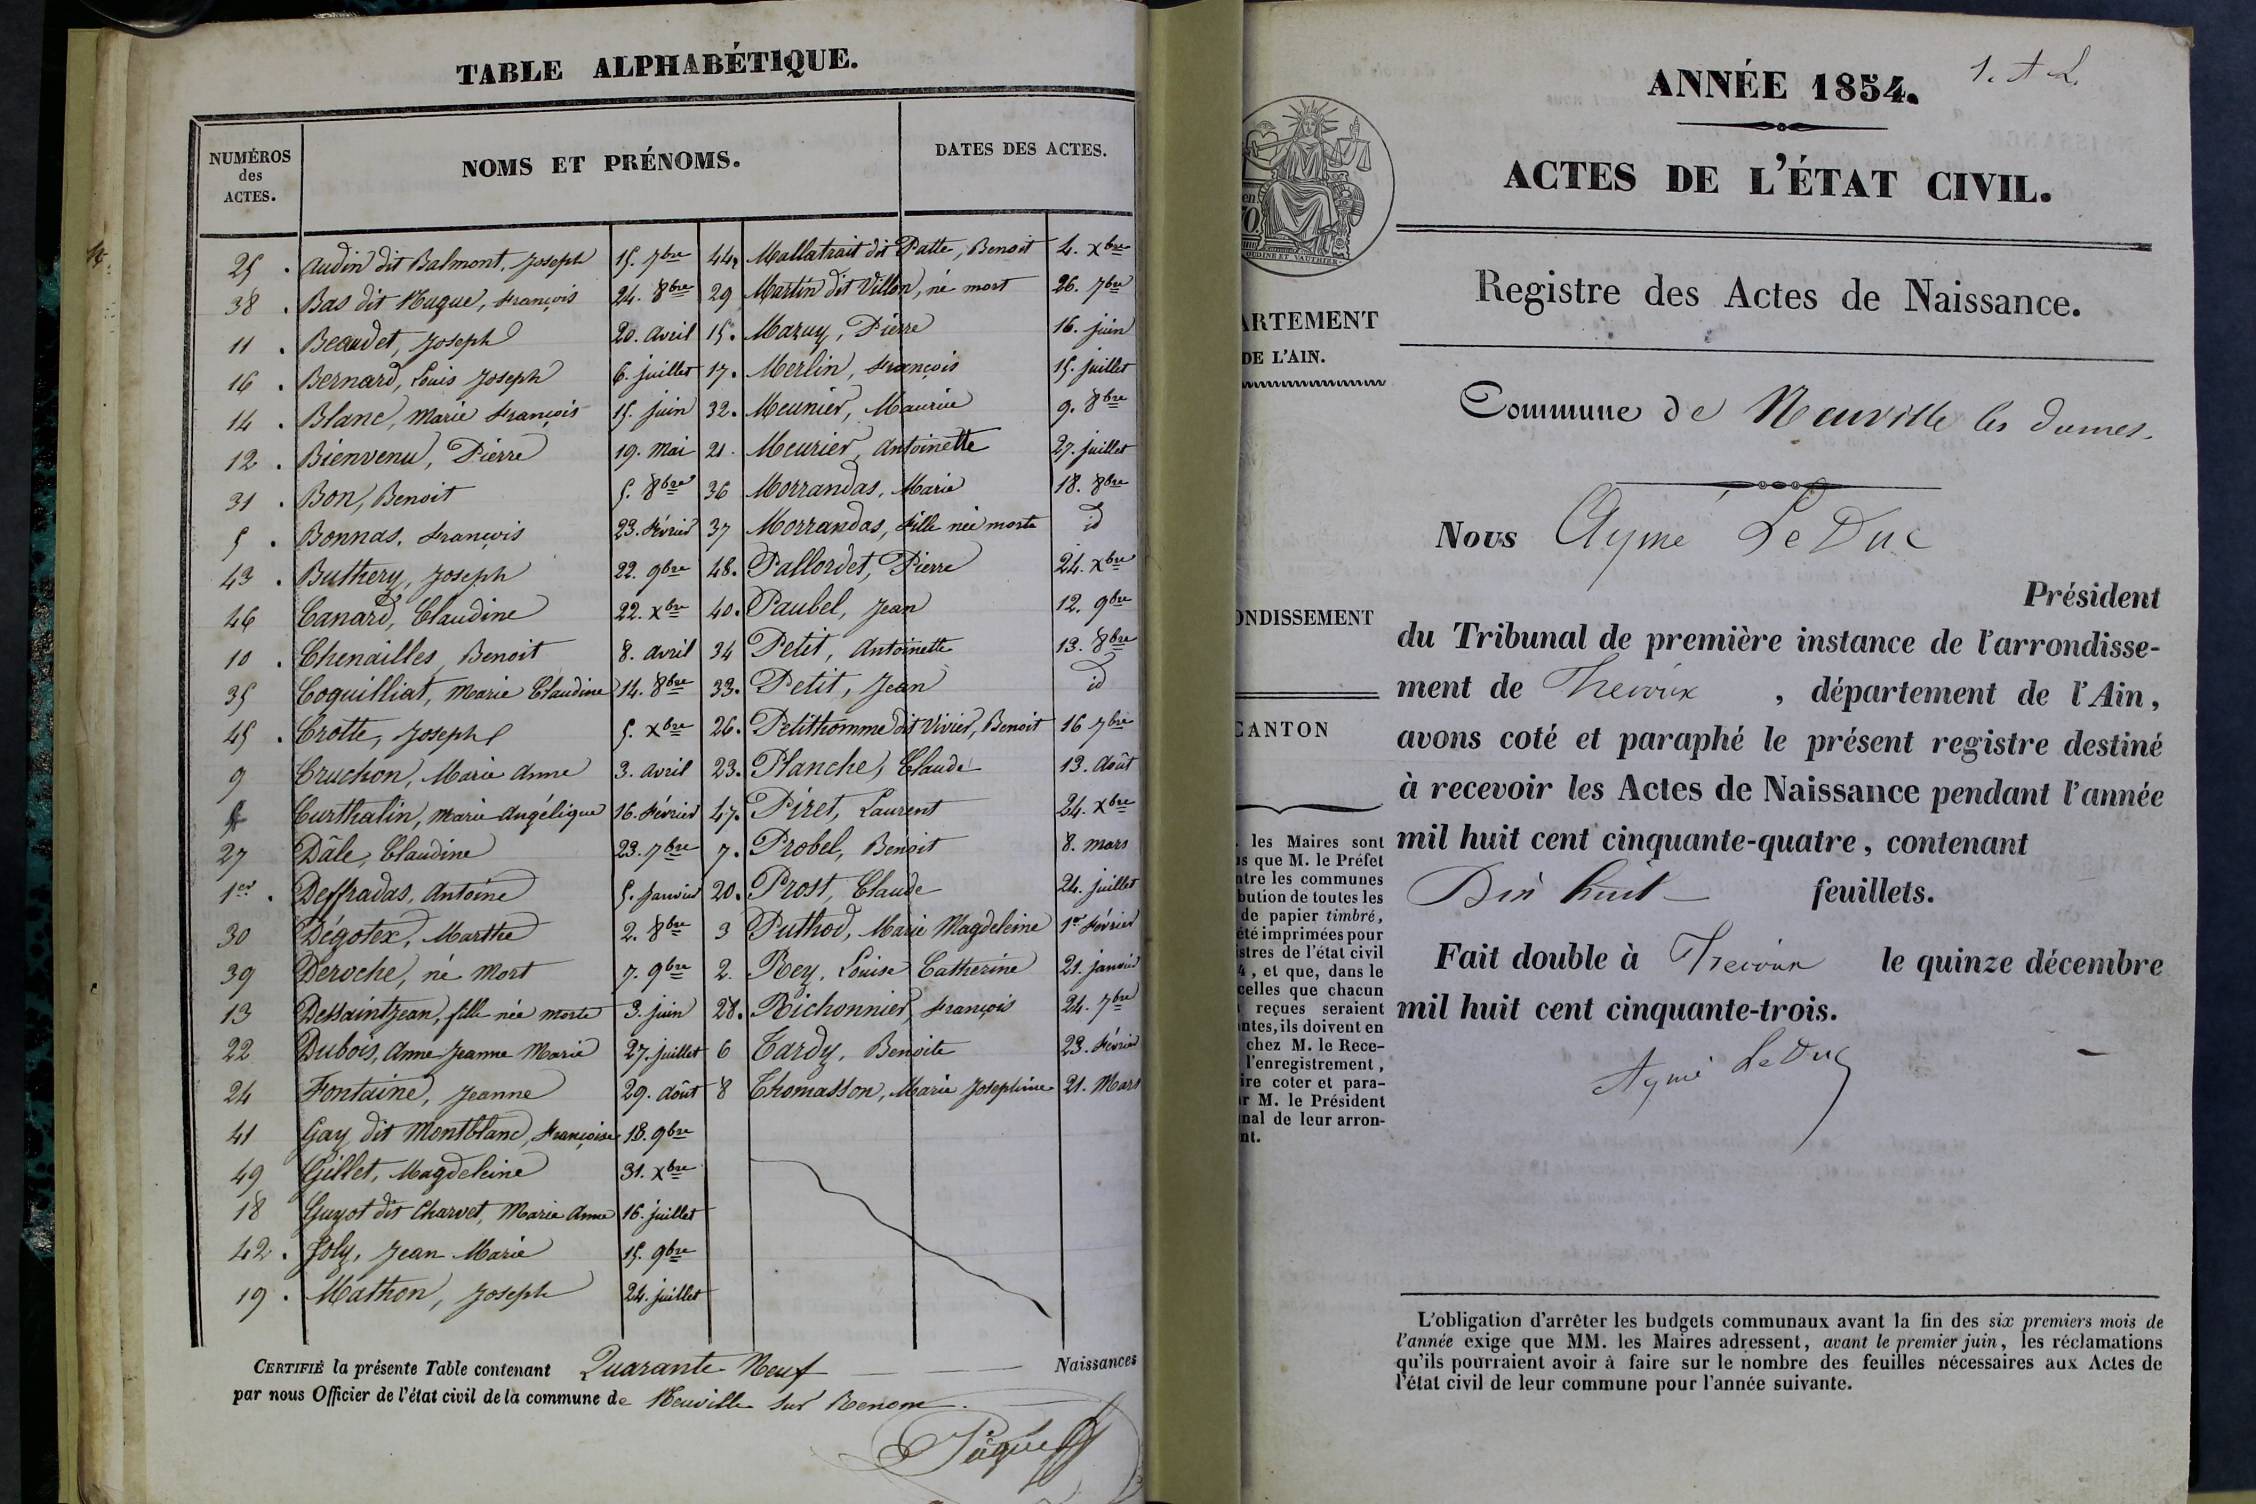 TABLE ALPHABÉTIQUE.
NUMÉROS des ACTES.
NOMS ET PRÉNOMS.
DATES DES ACTES.
25 . Audin dit Balmont, Joseph 15. 7bre
38 . Bas dit Hugue, François 24. 8bre
11 . Beaudet, Joseph 20. avril
16 . Bernard, Louis Joseph 6. juillet
14 . Blanc, Marie François 15. juin
12 . Bienvenu, Pierre 19. Mai
31 . Bon, Benoit 5. 8bre
5 . Bonnas, François 23. Février
43 . Buthery, Joseph 22. 9bre
46 Canard, Claudine 22. Xbre
10 . Chenailles, Benoit 8. avril
35 Coquilliat, Marie Claudine 14. 8bre
45 . Crotte, Joseph 5. Xbre
9 Cruchon, Marie Anne 3. avril
4 Curthalin, Marie Angélique 16. Février
27 Dâle, Claudine 23. 7bre
1er . Deffradas, Antoine 5. Janvier
30 Dégotex, Marthe 2. 8bre
39 Deroche, né Mort 7. 9bre
13 Dessaintjean, fille née morte 3. juin
22 Dubois, Anne Jeanne Marie 27. juillet
24 Fontaine, Jeanne 29. Août
41 Gay dit Montblanc, Françoise 18. 9bre
49 Gillet, Magdeleine 31. Xbre
18 Guyot dit Charvet, Marie Anne 16. juillet
42 . Joly, Jean Marie 15. 9bre
19 . Mathon, Joseph 24. juillet
44. Mallatrait dit Patte, Benoit 4. Xbre
29 Martin dit Villon, né mort 26. 7bre
15. Mazuy, Pierre 16. juin
17. Merlin, François 15. juillet
32. Meunier, Maurice 9. 8bre
21. Meurier, Antoinette 27. juillet
36 Morrandas, Marie 18. 8bre
37 Morrandas, Fille née morte id
48. Pallordet, Pierre 24. Xbre
40. Paubel, Jean 12. 9bre
34 Petit, Antoinette 13. 8bre
33. Petit, Jean id
26. Petithomme dit Vivier, Benoit 16 7bre
23. Planche, Claude 13. Août
47. Piret, Laurent 24. Xbre
7. Probel, Benoit 8. mars
20. Prost, Claude 24. juillet
3 Puthod, Marie Magdeleine 1er Février
2. Rey, Louise Catherine 21. janvier
28. Richonnier, François 24. 7bre
6 Tardy, Benoite 23. Février
8 Thomasson, Marie Josephine 21. Mars
CERTIFIÉ la présente Table contenant Quarante Neuf Naissances
par nous Officier de l'état civil de la commune de Neuville sur Renom
Pâque
1. A L.
ANNÉE 1854.
ACTES DE L'ÉTAT CIVIL.
OUDINE ET VAUTHIER
Registre des Actes de Naissance.
ARTEMENT
DE L'AIN.
Commune de Neuville les dames.
Nous Aymé Le Duc
Président
ONDISSEMENT
du Tribunal de première instance de l'arrondisse-
ment de Trévoux , département de l'Ain,
CANTON
avons coté et paraphé le présent registre destiné
à recevoir les Actes de Naissance pendant l'année
mil huit cent cinquante-quatre, contenant
Dix huit feuillets.
Fait double à Trévoux le quinze décembre
mil huit cent cinquante-trois.
Aymé Le Duc
les Maires sont
s que M. le Préfet
ntre les communes
bution de toutes les
de papier timbré,
été imprimées pour
istres de l'état civil
4, et que, dans le
celles que chacun
reçues seraient
ntes, ils doivent en
chez M. le Rece-
l'enregistrement,
ire coter et para-
r M. le Président
nal de leur arron-
nt.
L'obligation d'arrêter les budgets communaux avant la fin des six premiers mois de
l'année exige que MM. les Maires adressent, avant le premier juin, les réclamations
qu'ils pourraient avoir à faire sur le nombre des feuilles nécessaires aux Actes de
l'état civil de leur commune pour l'année suivante.